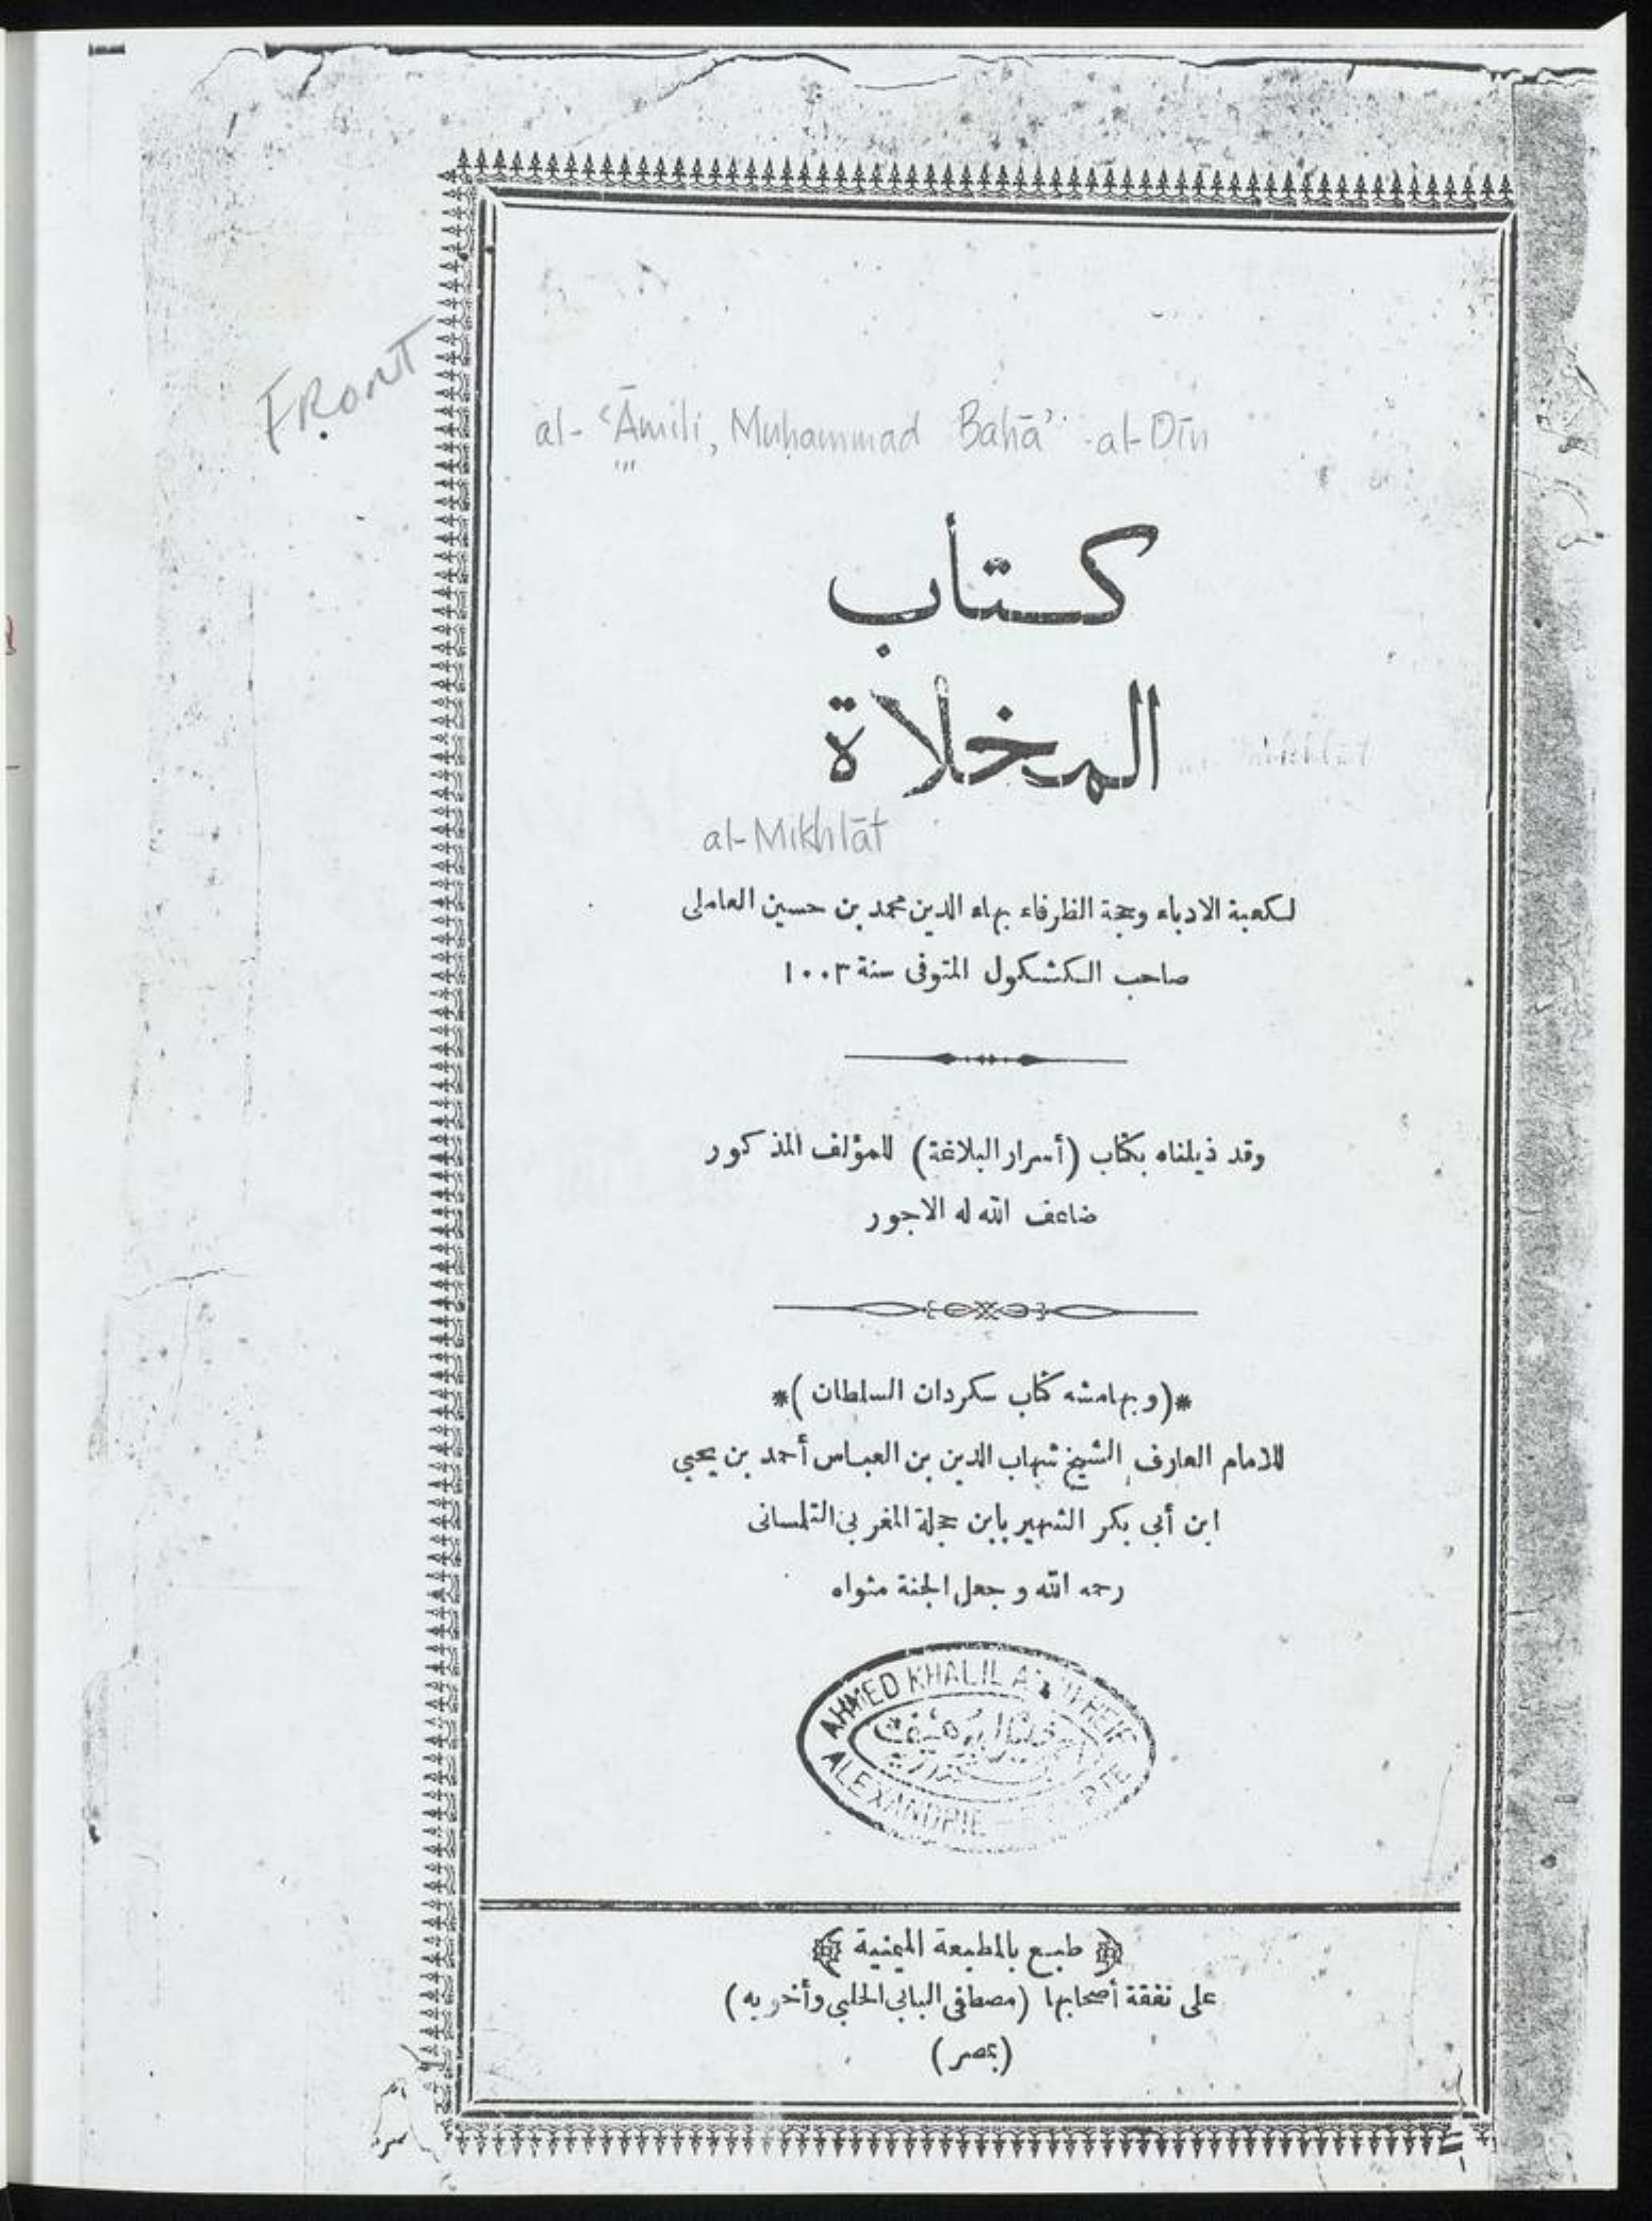 FRONT
al-ʿĀmili, Muḥammad Bahāʾ al-Dīn
كتاب
المخلاة
al-Mikhlāt
لكعبة الادباء وحجة الظرفاء بهاء الدين محمد بن حسين العاملى
صاحب الكشكول المتوفى سنة ١٠٠٣
وقد ذيلناه بكتاب (أسرار البلاغة) للمؤلف المذكور
ضاعف الله له الاجور
*(وبهامشه كتاب سكردان السلطان)*
للامام العارف الشيخ شهاب الدين بن العباس أحمد بن يحيى
ابن أبى بكر الشهير بابن حجلة المغربى التلمسانى
رحمه الله وجعل الجنة مثواه
AHMED KHALIL
ALEXANDRIE
﴿طبع بالمطبعة الميمنية﴾
على نفقة أصحابها (مصطفى البابى الحلبى وأخويه)
(بمصر)